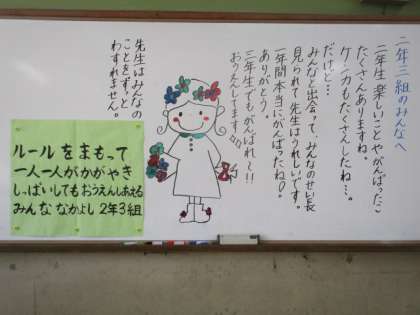 二年三組のみんなへ
二年生楽しいことやがんばったこと
たくさんありますね。
ケンカもたくさんしたね…。
だけど…
みんなと出会って、みんなのせい長
見られて先生はうれしいです。
一年間本当にがんばったね♡。
ありがとう。
三年生でもがんばれー!!
おうえんしてます
先生はみんなの
ことをずっと
わすれません。
ルールをまもって
一人一人がかがやき
しっぱいしてもおうえんしあえる
みんななかよし2年3組